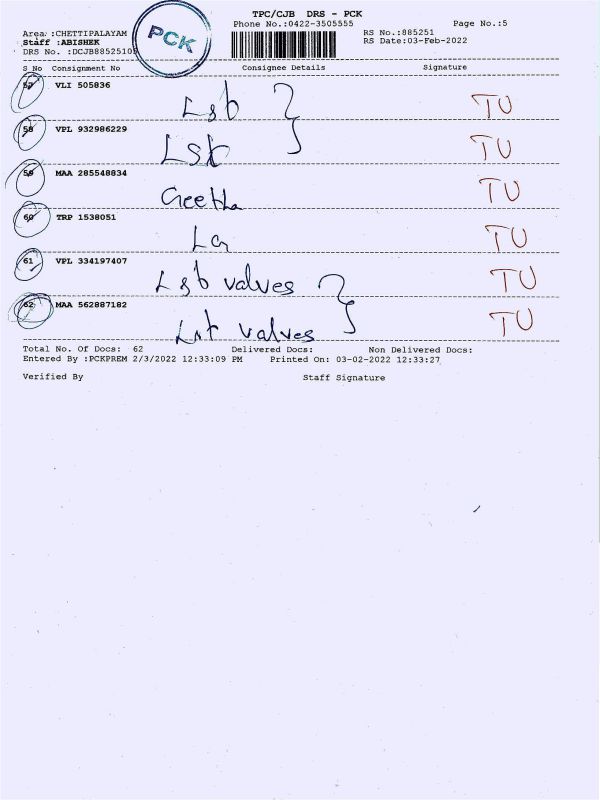 TPC/CJB DRS - PCK
Phone No.:0422-3505555
Page No.:5
Area :CHETTIPALAYAM
RS No.:885251
Staff :ABISHEK
RS Date:03-Feb-2022
DRS No. :DCJB8852510
PCK
S No Consignment No Consignee Details Signature
57 VLI 505836
Lsb TU
58 VPL 932986229
TU
59 MAA 285548834
Geetha TU
60 TRP 1538051
TU
61 VPL 334197407
Lsb valves TU
62 MAA 562887182
valves TU
Total No. Of Docs: 62 Delivered Docs: Non Delivered Docs:
Entered By :PCKPREM 2/3/2022 12:33:09 PM Printed On: 03-02-2022 12:33:27
Verified By Staff Signature